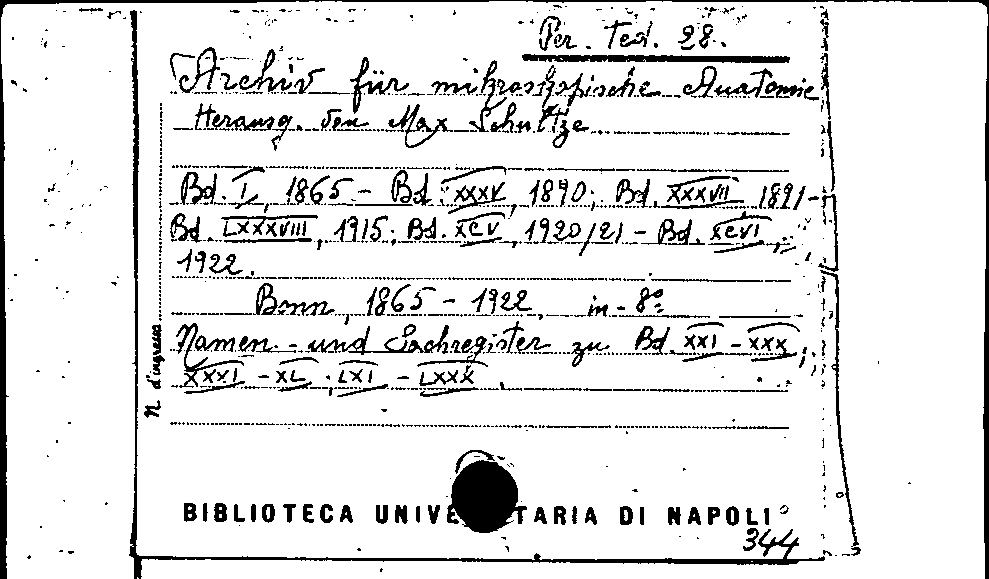 Per. Ted. 28.
Archiv für mikroskopische Anatomie
Herausg. von Max Schultze
Bd. I, 1865 - Bd. XXXV, 1890; Bd. XXXVII 1891 -
Bd. LXXXVIII, 1915; Bd. XCV, 1920/21 - Bd. XCVI,
1922.
Bonn, 1865 - 1922, in - 8°
Namen - und Sachregister zu Bd. XXI - XXX,
XXXI - XL, LXI - LXXX.
N. d'ingresso
BIBLIOTECA DI NAPOLI
344